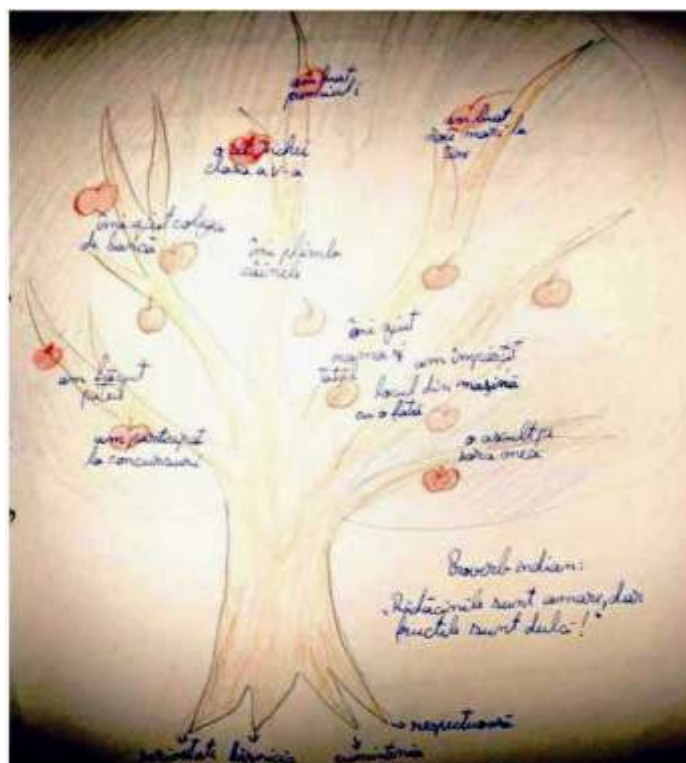 am luat
premiul I
am luat
note mari la
teze
am închei
clasa a V-a
îmi ajut colega
de bancă
îmi plimb
câinele
îmi ajut
mama și
tatăl
am împărțit
locul din mașină
cu o fată
am
am participat
la concursuri
o ascult pe
sora mea
Proverb indian:
„Rădăcinile sunt amare, dar
fructele sunt dulci!"
respectuoasă
hărnicia